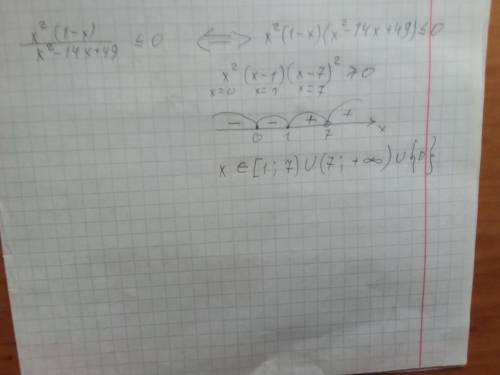 x² (1-x) / x²-14x+49 ≤ 0 ⟺ x² (1-x)(x²-14x+49) ≤ 0
x² (x-1) (x-7)² ≥ 0
x=0 x=1 x=7
- - + +
0 1 7 x
x ∈ [1; 7) ∪ (7; +∞) ∪ {0}